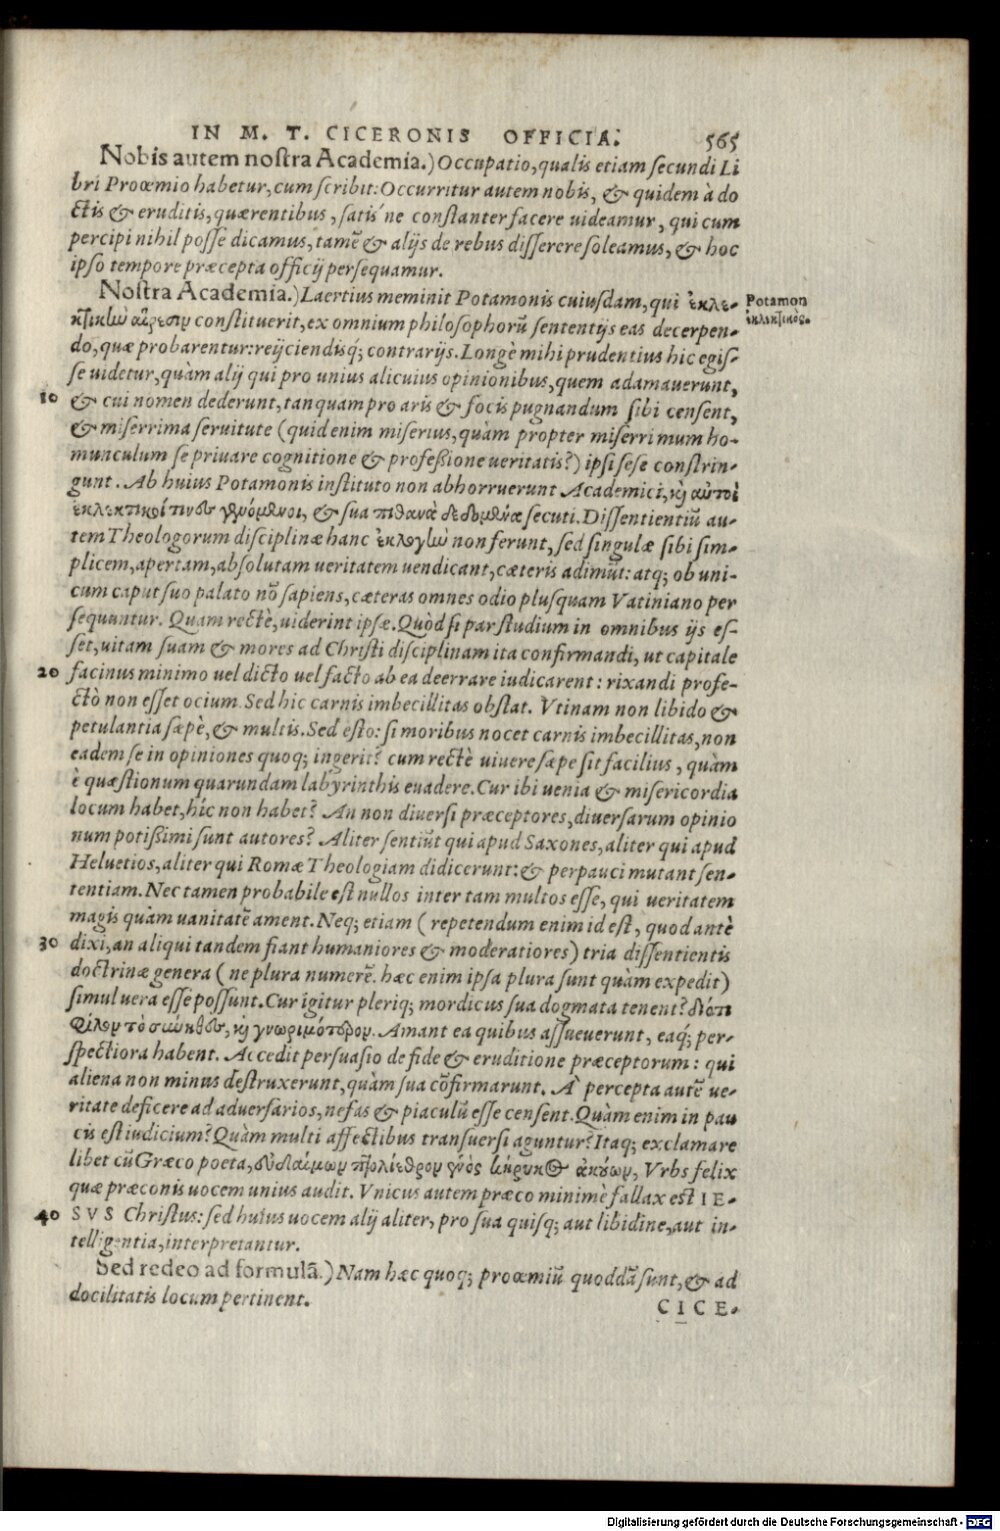 IN M. T. CICERONIS OFFICIA. 565
Nobis autem nostra Academia.) Occupatio, qualis etiam secundi Li
bri Proœmio habetur, cum scribit: Occurritur autem nobis, & quidem à do
ctis & eruditis, quærentibus, satis'ne constanter facere uideamur, qui cum
percipi nihil posse dicamus, tamẽ & alijs de rebus disserere soleamus, & hoc
ipso tempore præcepta officij persequamur.
Nostra Academia.) Laertius meminit Potamonis cuiusdam, qui ἐκλε-
κτικὴν αἵρεσιν constituerit, ex omnium philosophorũ sententijs eas decerpen-
do, quæ probarentur: reijciendisq́; contrarijs. Longè mihi prudentius hic egis-
se uidetur, quàm alij qui pro unius alicuius opinionibus, quem adamauerunt,
10 & cui nomen dederunt, tanquam pro aris & focis pugnandum sibi censent,
& miserrima seruitute (quid enim miserius, quàm propter miserrimum ho-
munculum se priuare cognitione & professione ueritatis?) ipsi sese constrin-
gunt. Ab huius Potamonis instituto non abhorruerunt Academici, καὶ αὐτοὶ
ἐκλεκτικοί τινες γενόμενοι, & sua πιθανὰ δεδομένα secuti. Dissentientiũ au-
tem Theologorum disciplinæ hanc ἐκλογὴν non ferunt, sed singulæ sibi sim-
plicem, apertam, absolutam ueritatem uendicant, cæteris adimũt: atq; ob uni-
cum caput suo palato nõ sapiens, cæteras omnes odio plusquam Vatiniano per
sequuntur. Quam rectè, uiderint ipsæ. Quòd si par studium in omnibus ijs es-
set, uitam suam & mores ad Christi disciplinam ita confirmandi, ut capitale
20 facinus minimo uel dicto uel facto ab ea deerrare iudicarent: rixandi profe-
ctò non esset ocium. Sed hic carnis imbecillitas obstat. Vtinam non libido &
petulantia sæpè, & multis. Sed esto: si moribus nocet carnis imbecillitas, non
eadem se in opiniones quoq; ingerit? cum rectè uiuere sæpe sit facilius, quàm
è quæstionum quarundam labyrinthis euadere. Cur ibi uenia & misericordia
locum habet, hîc non habet? An non diuersi præceptores, diuersarum opinio
num potissimi sunt autores? Aliter sentiũt qui apud Saxones, aliter qui apud
Heluetios, aliter qui Romæ Theologiam didicerunt: & perpauci mutant sen-
tentiam. Nec tamen probabile est nullos inter tam multos esse, qui ueritatem
magis quàm uanitatẽ ament. Neq; etiam (repetendum enim id est, quod antè
30 dixi, an aliqui tandem fiant humaniores & moderatiores) tria dissentientis
doctrinæ genera (ne plura numerẽ. hæc enim ipsa plura sunt quàm expedit)
simul uera esse possunt. Cur igitur pleriq; mordicus sua dogmata tenent? διότι
φίλον τὸ σύνηθες, καὶ γνωριμότερον. Amant ea quibus assueuerunt, eaq́; per-
spectiora habent. Accedit persuasio de fide & eruditione præceptorum: qui
aliena non minus destruxerunt, quàm sua cõfirmarunt. A' percepta autẽ ue-
ritate deficere ad aduersarios, nefas & piaculũ esse censent. Quàm enim in pau
cis est iudicium? Quàm multi affectibus transuersi aguntur? Itaq; exclamare
libet cũ Græco poeta, εὐδαίμων πτολίεθρον ἑνὸς κήρυκος ἀκούων, Vrbs felix
quæ præconis uocem unius audit. Vnicus autem præco minimè fallax est IE-
40 SVS Christus: sed huius uocem alij aliter, pro sua quisq; aut libidine, aut in-
telligentia, interpretantur.
Sed redeo ad formulã.) Nam hæc quoq; proœmiũ quoddã sunt, & ad
docilitatis locum pertinent.
CICE-
Potamon
ἐκλεκτικός.
Digitalisierung gefördert durch die Deutsche Forschungsgemeinschaft - DFG